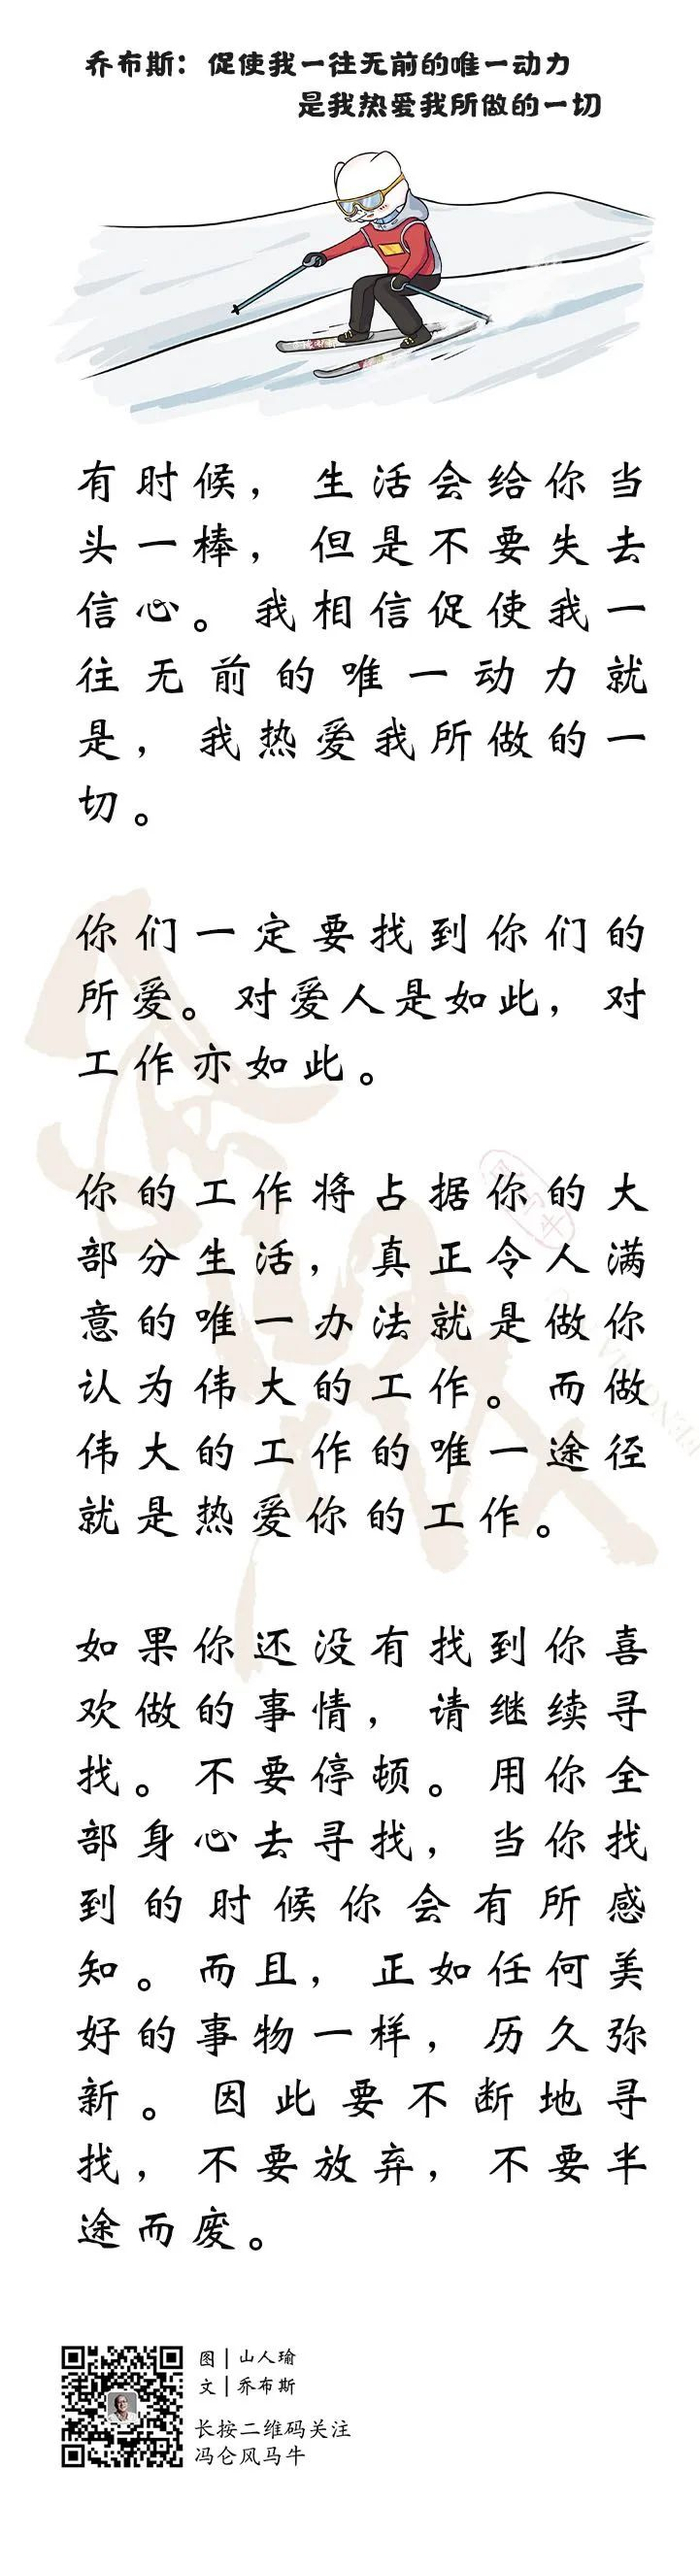 乔布斯：促使我一往无前的唯一动力
是我热爱我所做的一切
有时候，生活会给你当
头一棒，但是不要失去
信心。我相信促使我一
往无前的唯一动力就
是，我热爱我所做的一
切。
你们一定要找到你们的
所爱。对爱人是如此，对
工作亦如此。
你的工作将占据你的大
部分生活，真正令人满
意的唯一办法就是做你
认为伟大的工作。而做
伟大的工作的唯一途径
就是热爱你的工作。
如果你还没有找到你喜
欢做的事情，请继续寻
找。不要停顿。用你全
部身心去寻找，当你找
到的时候你会有所感
知。而且，正如任何美
好的事物一样，历久弥
新。因此要不断地寻
找，不要放弃，不要半
途而废。
图 | 山人瑜
文 | 乔布斯
长按二维码关注
冯仑风马牛